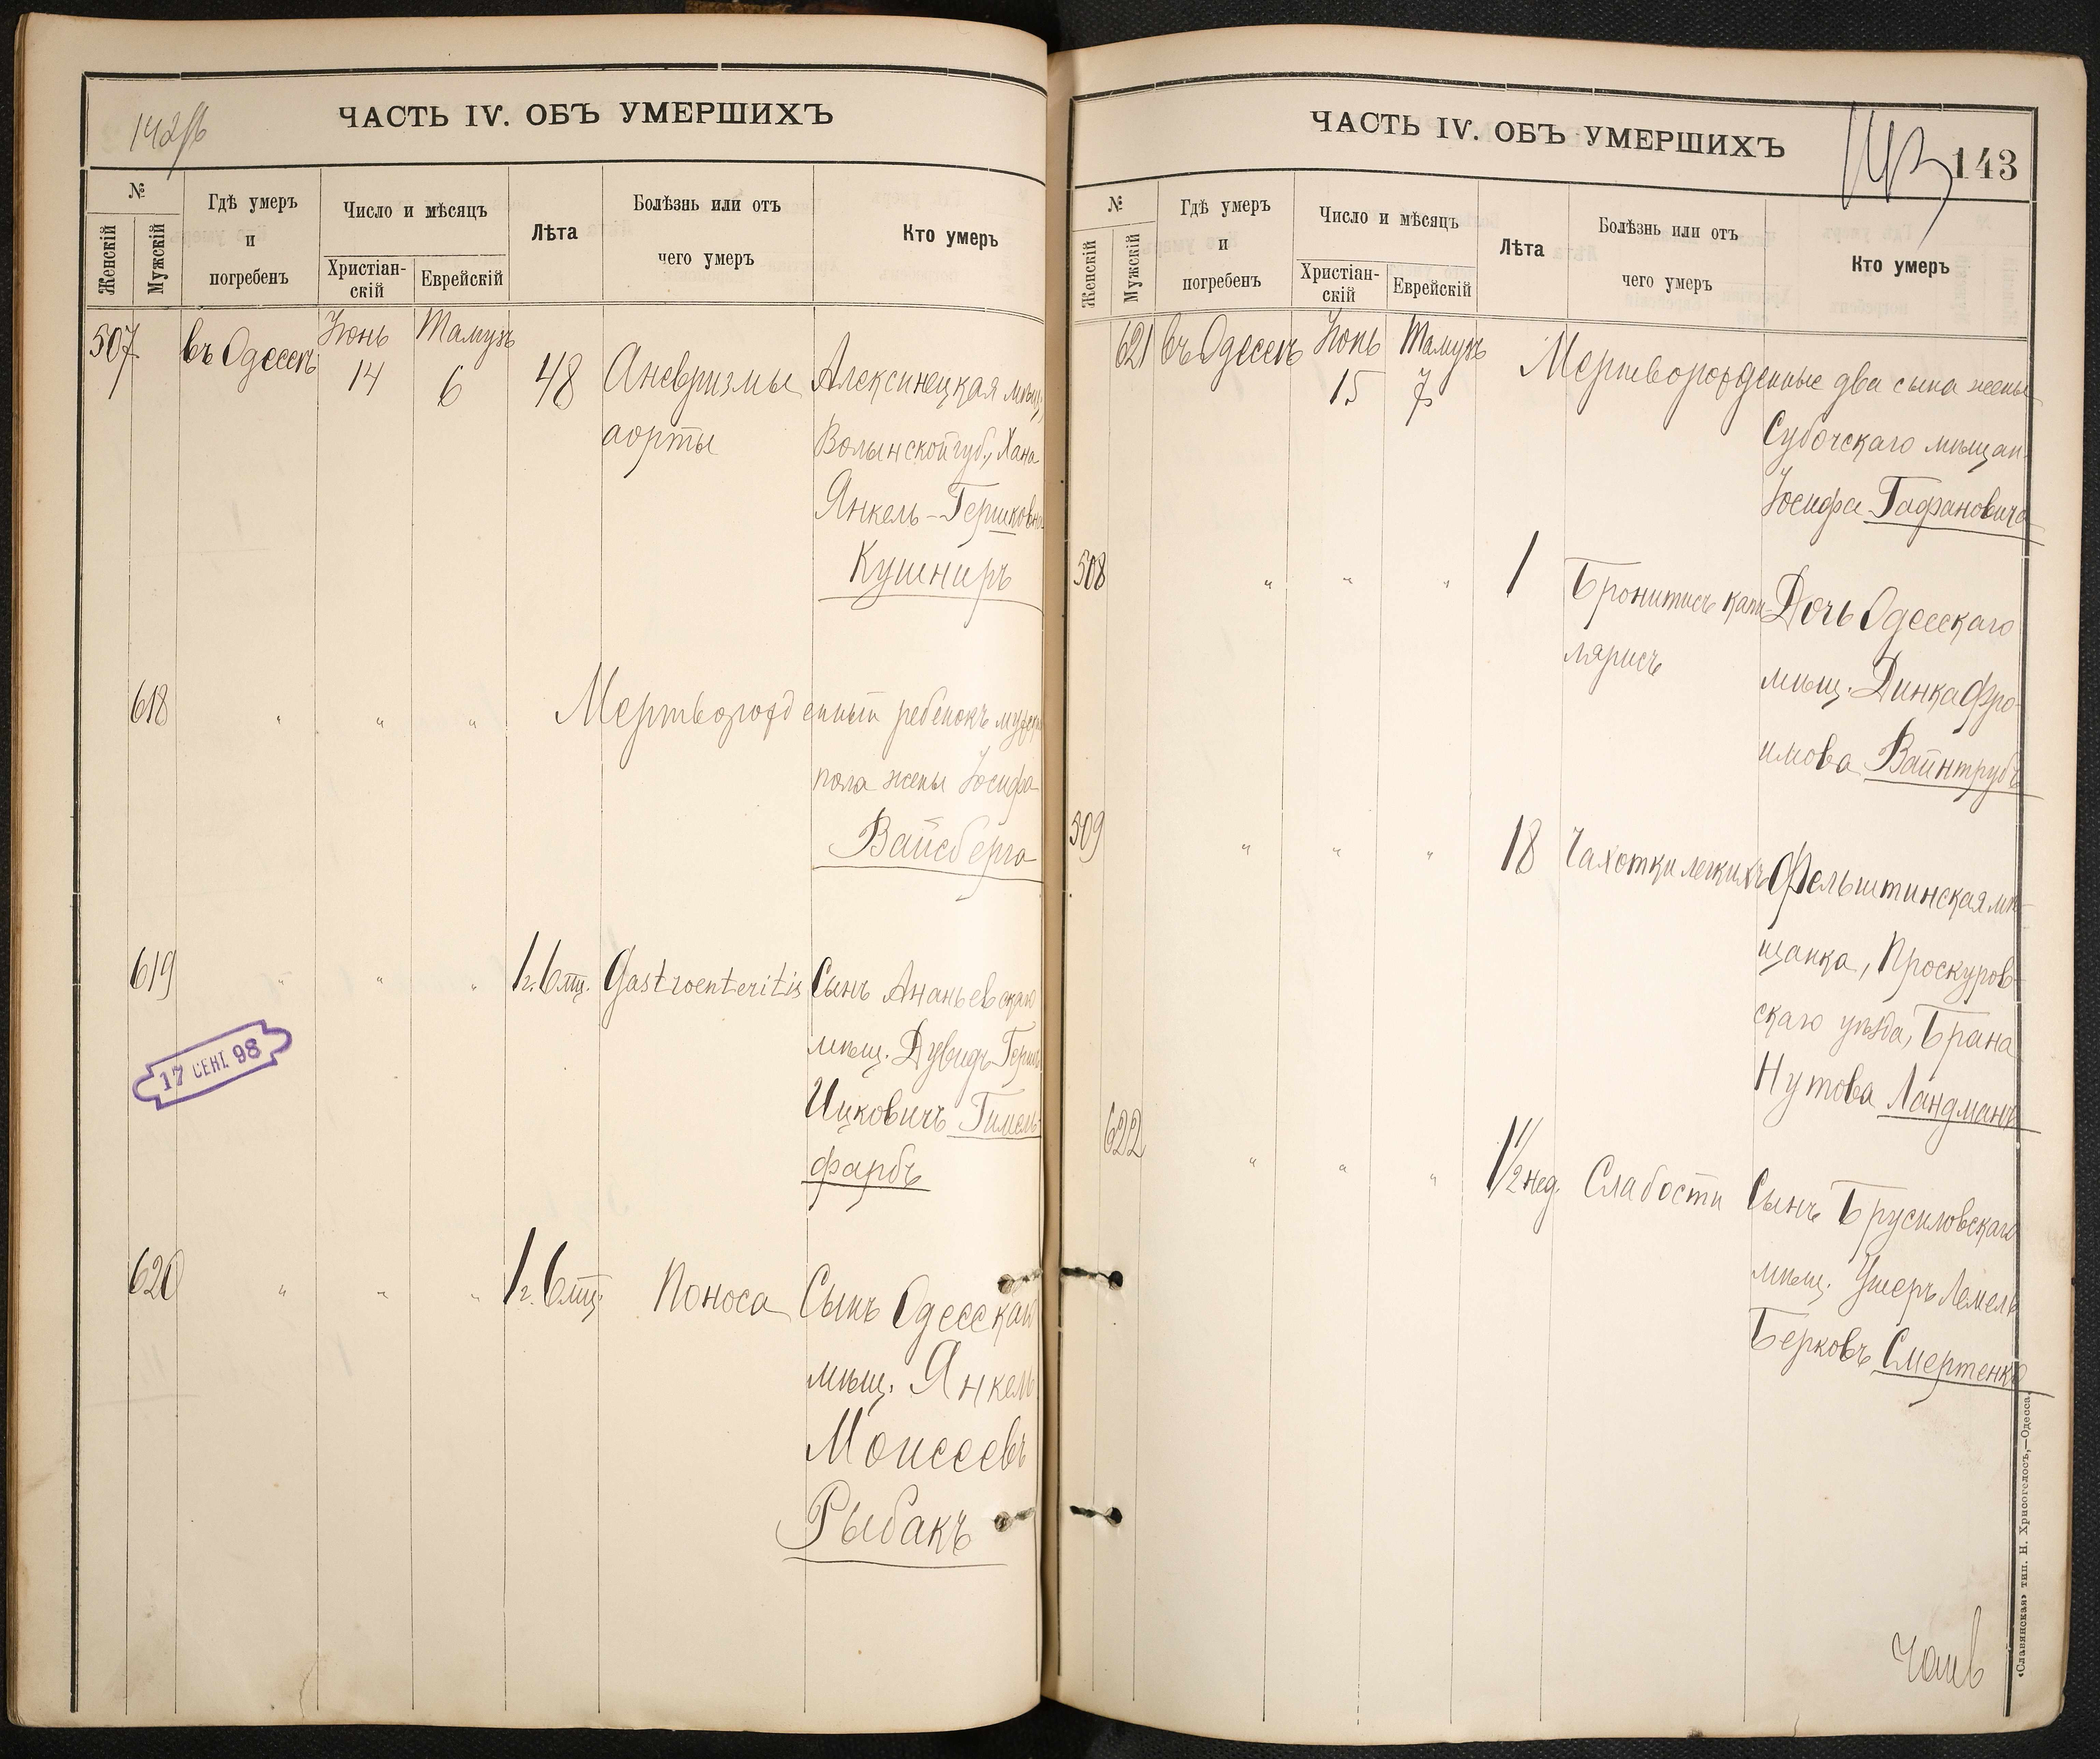 142 об
ЧАСТЬ IV. ОБЪ УМЕРШИХЪ
№
Женскій
Мужскій
Гдѣ умеръ
и
погребенъ
Число и мѣсяцъ
Христіан-
скій
Еврейскій
Лѣта
Болѣзнь или отъ
чего умеръ
Кто умеръ
507 въ Одессѣ Іюнь 14 Тамузъ 6 48 Аневризмы Алексинецкая мѣщ.,
аорты Волынской губ., Хана
Янкель-Гершковна
Кушниръ
618 " " " Мертворожденный ребенокъ мужск.
пола жены Іосифа
Вайсберга
619 " " " 1 г. 6 мц. Gastroenteritis Сынъ Ананьевскаго
мѣщ. Дувидъ-Гершъ
Ицковичъ Гимель-
фарбъ
17 СЕНТ 98
620 " " " 1 г. 6 мц. Поноса Сынъ Одесскаго
мѣщ. Янкель
Моисеевъ
Рыбакъ
ЧАСТЬ IV. ОБЪ УМЕРШИХЪ
143
143
№
Женскій
Мужскій
Гдѣ умеръ
и
погребенъ
Число и мѣсяцъ
Христіан-
скій
Еврейскій
Лѣта
Болѣзнь или отъ
чего умеръ
Кто умеръ
621 въ Одессѣ Іюнь 15 Тамузъ 7 Мертворожденные два сына жены
Субочскаго мѣщан.
Іосифа Гафановича
508 " " " 1 Бронитисъ капи- Дочь Одесскаго
лярисъ мѣщ. Динка Фро-
имова Вайнтрубъ
509 " " " 18 Чахотки легкихъ Фельштинская мѣ-
щанка, Проскуров-
скаго уѣзда, Брана
Нутова Ландманъ
622 " " " 1 1/2 нед. Слабости Сынъ Брусиловскаго
мѣщ. Ушеръ Лемель
Берковъ Смертенко
«Славянская» тип. Н. Хрисогелосъ,—Одесса.